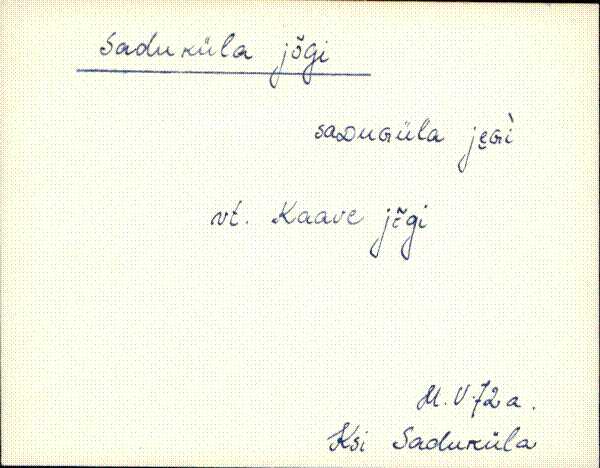 Saduküla jõgi
saᴅuɢüla je̮ɢì
vt. Kaave jõgi
M. V. 72 a.
Ksi Saduküla